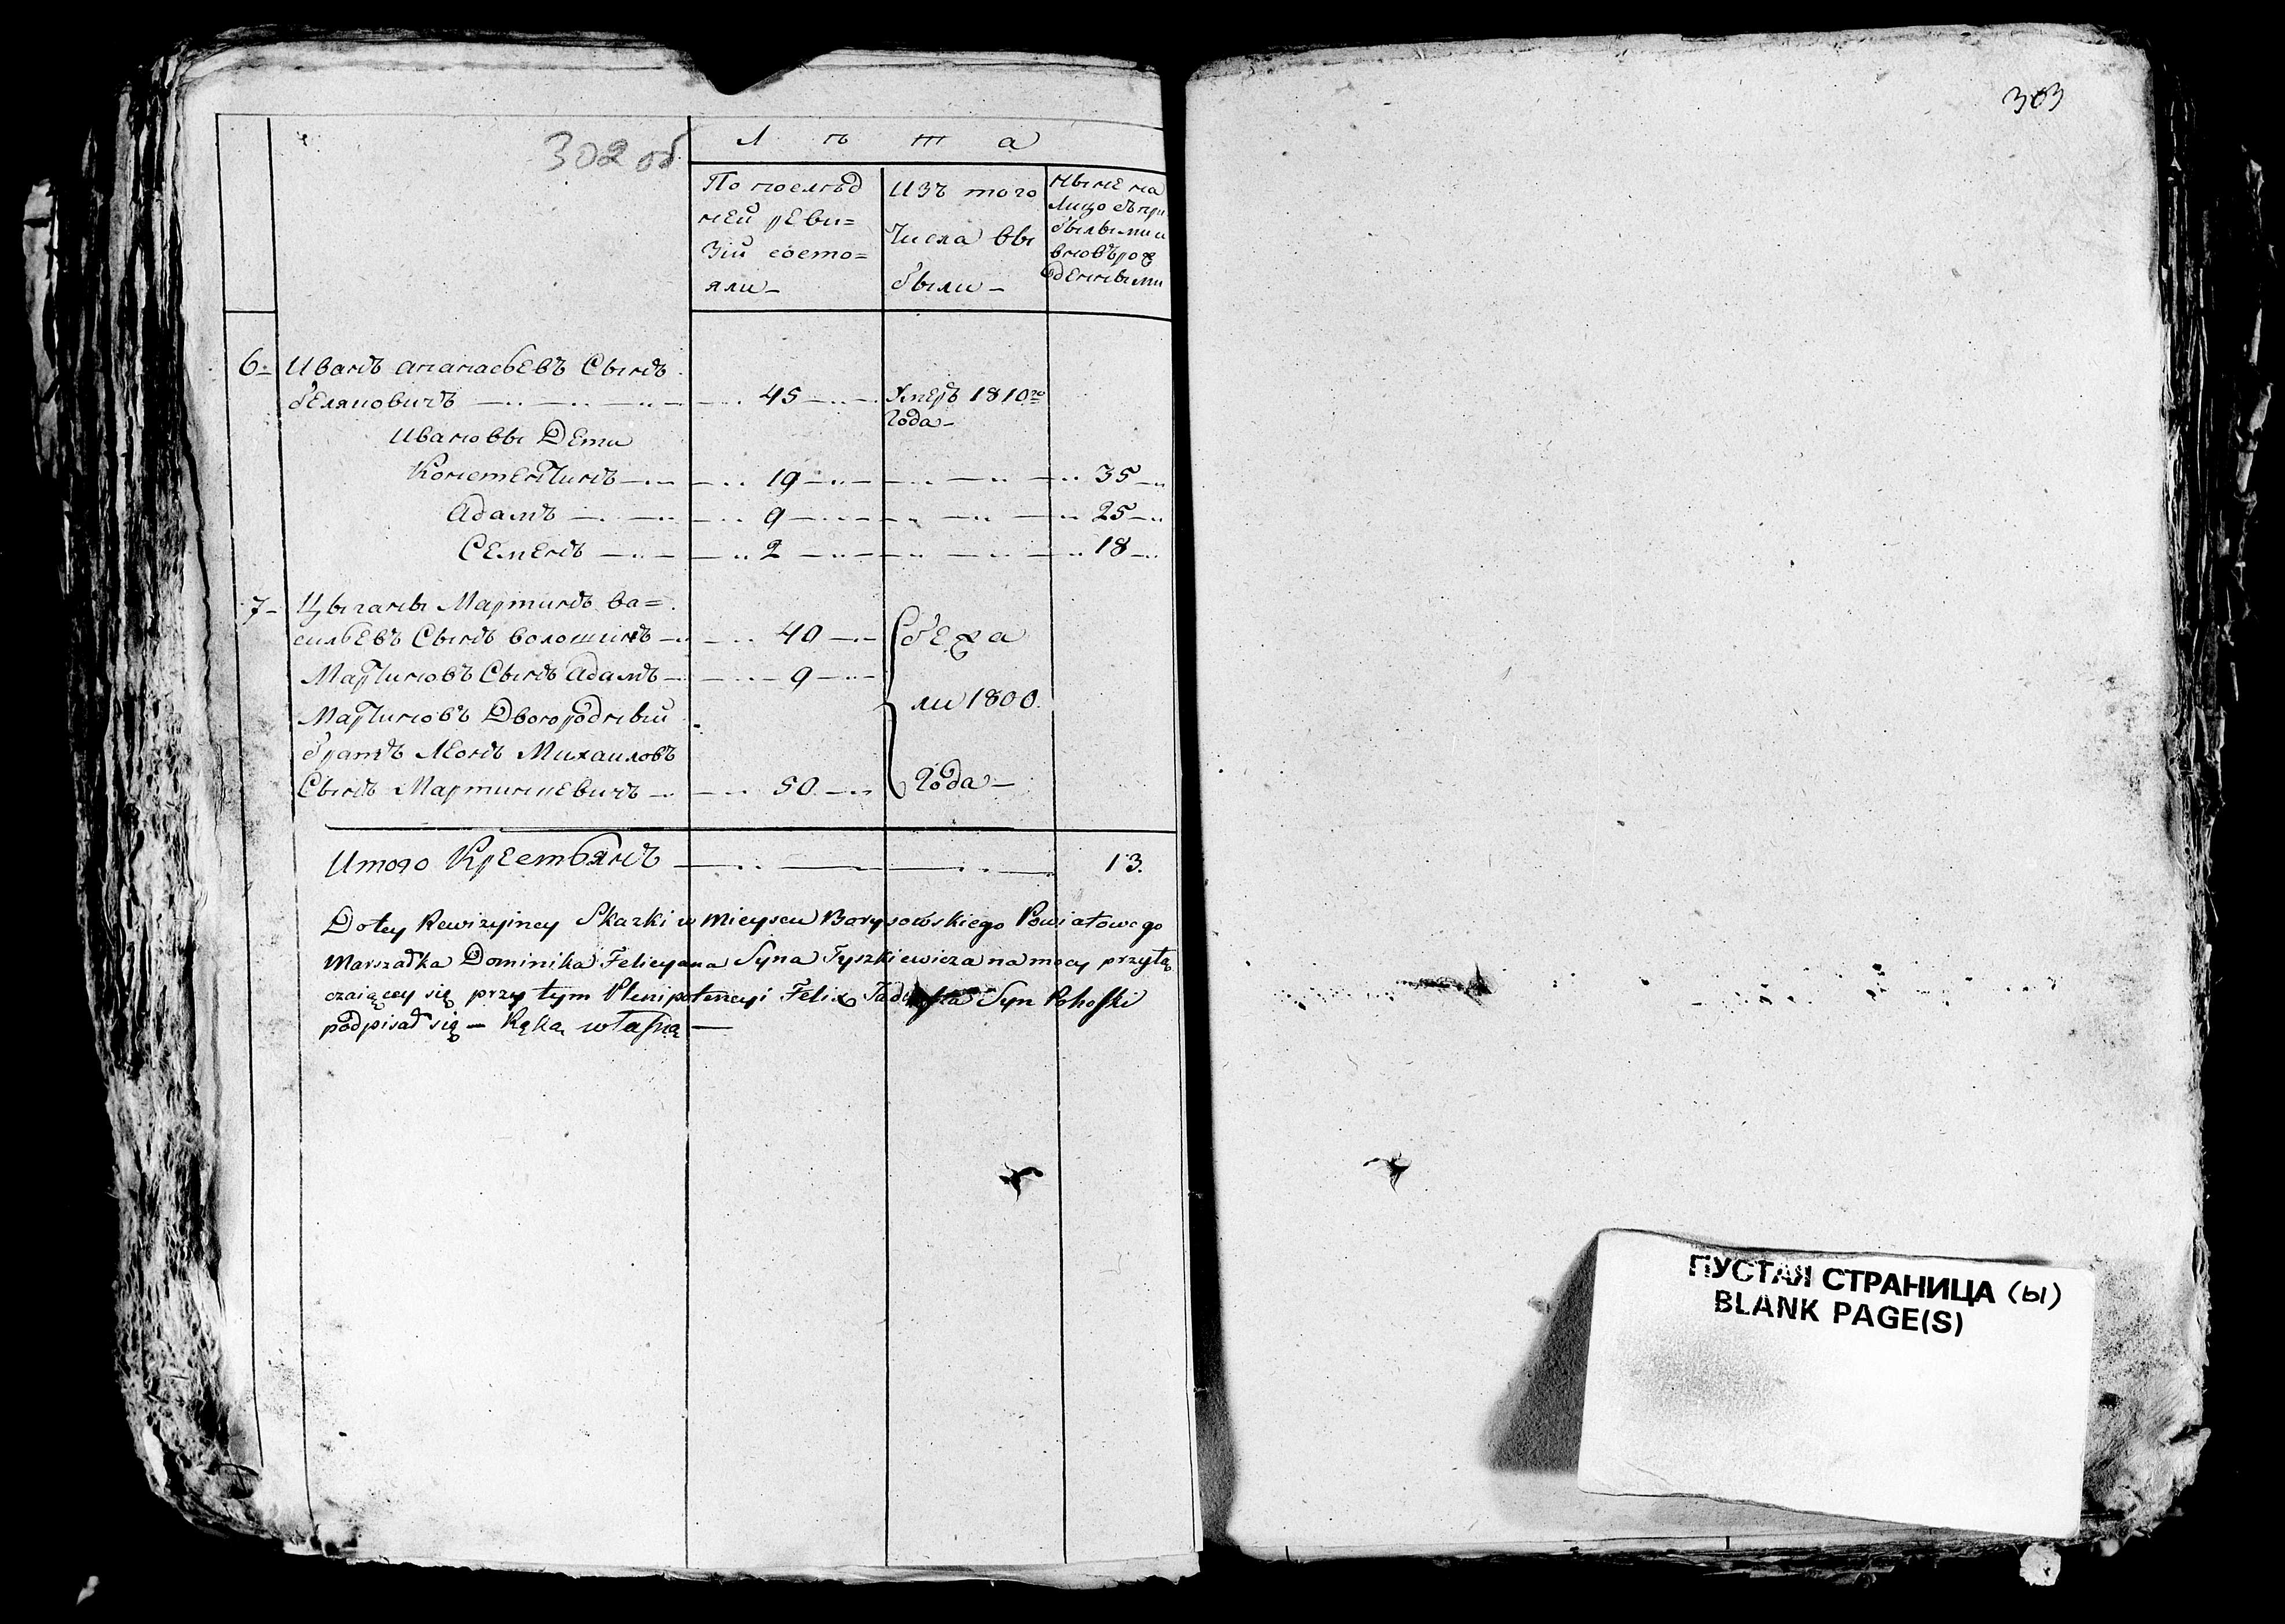 302 об
303
Лѣта
По послѣд
ней реви=
зіи состо=
яли –
Изъ того
числа вы
были –
Ныне на
лицо съ при
былыми и
вновь рож
денными
6. Иванъ Ананасьевъ Сынъ
беляновичъ 45 Умеръ 1810го
Года –
Ивановы Дети
Констентинъ 19 35
Адамъ 9 25
Семенъ 2 18
7 – Цыганы Мартинъ ва=
сильевъ Сынъ волошинъ 40 бежа
Мартиновъ Сынъ Адамъ 9
ли 1800.
Мартиновъ Двоюродный
братъ Леонъ Михаиловъ
Сынъ Мартинкевичъ 50 Года –
Итого Крестьянъ 13.
Do tey Rewizyiney Skazki w Mieyscu Borysowskiego Powiatowego
Marszałka Dominika Felicyana Syna Tyszkiewicza na mocy przyłą
czaiącey się przy tym Plenipotencyi Felix Syn
podpisał się – Ręką własną –
ПУСТАЯ СТРАНИЦА (Ы)
BLANK PAGE(S)